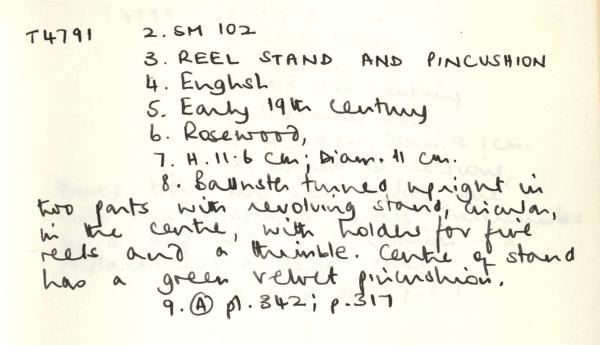 T4791 2. SM 102
3. REEL STAND AND PINCUSHION
4. English
5. Early 19th Century
6. Rosewood,
7. H. 11.6 cm; Diam. 11 cm.
8. Baluster turned upright in
two parts with revolving stand, circular,
in the centre, with holders for five
reels and a thimble. Centre of stand
has a green velvet pincushion.
9. Ⓐ pl. 342; p. 317